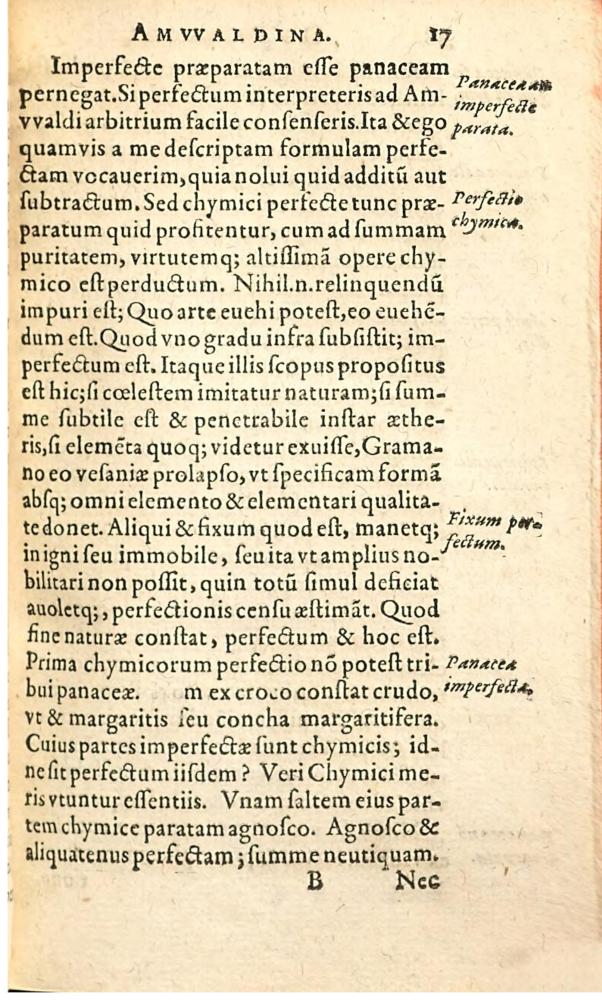 AMVVALDINA. 17
Imperfecte præparatam esse panaceam
pernegat. Si perfectum interpreteris ad Am-
vvaldi arbitrium facile consenseris. Ita & ego
quamvis a me descriptam formulam perfe-
ctam vocauerim, quia nolui quid additũ aut
subtractum. Sed chymici perfecte tunc præ-
paratum quid profitentur, cum ad summam
puritatem, virtutemq; altissimã opere chy-
mico est perductum. Nihil.n.relinquendũ
impuri est; Quo arte euehi potest, eo euehẽ-
dum est. Quod vno gradu infra subsistit; im-
perfectum est. Itaque illis scopus propositus
est hic; si cœlestem imitatur naturam; si sum-
me subtile est & penetrabile instar æthe-
ris, si elemẽta quoq; videtur exuisse, Grama-
no eo vesaniæ prolapso, vt specificam formã
absq; omni elemento & elementari qualita-
te donet. Aliqui & fixum quod est, manetq;
in igni seu immobile, seu ita vt amplius no-
bilitari non possit, quin totũ simul deficiat
auoletq;, perfectionis censu æstimãt. Quod
fine naturæ constat, perfectum & hoc est.
Prima chymicorum perfectio nõ potest tri-
bui panaceæ. m ex croco constat crudo,
vt & margaritis seu concha margaritifera.
Cuius partes imperfectæ sunt chymicis; id-
ne sit perfectum iisdem? Veri Chymici me-
ris vtuntur essentiis. Vnam saltem eius par-
tem chymice paratam agnosco. Agnosco &
aliquatenus perfectam; summe neutiquam.
B Nec
Panacea an
imperfecte
parata.
Perfectio
chymica.
Fixum per-
fectum.
Panacea
imperfecta.